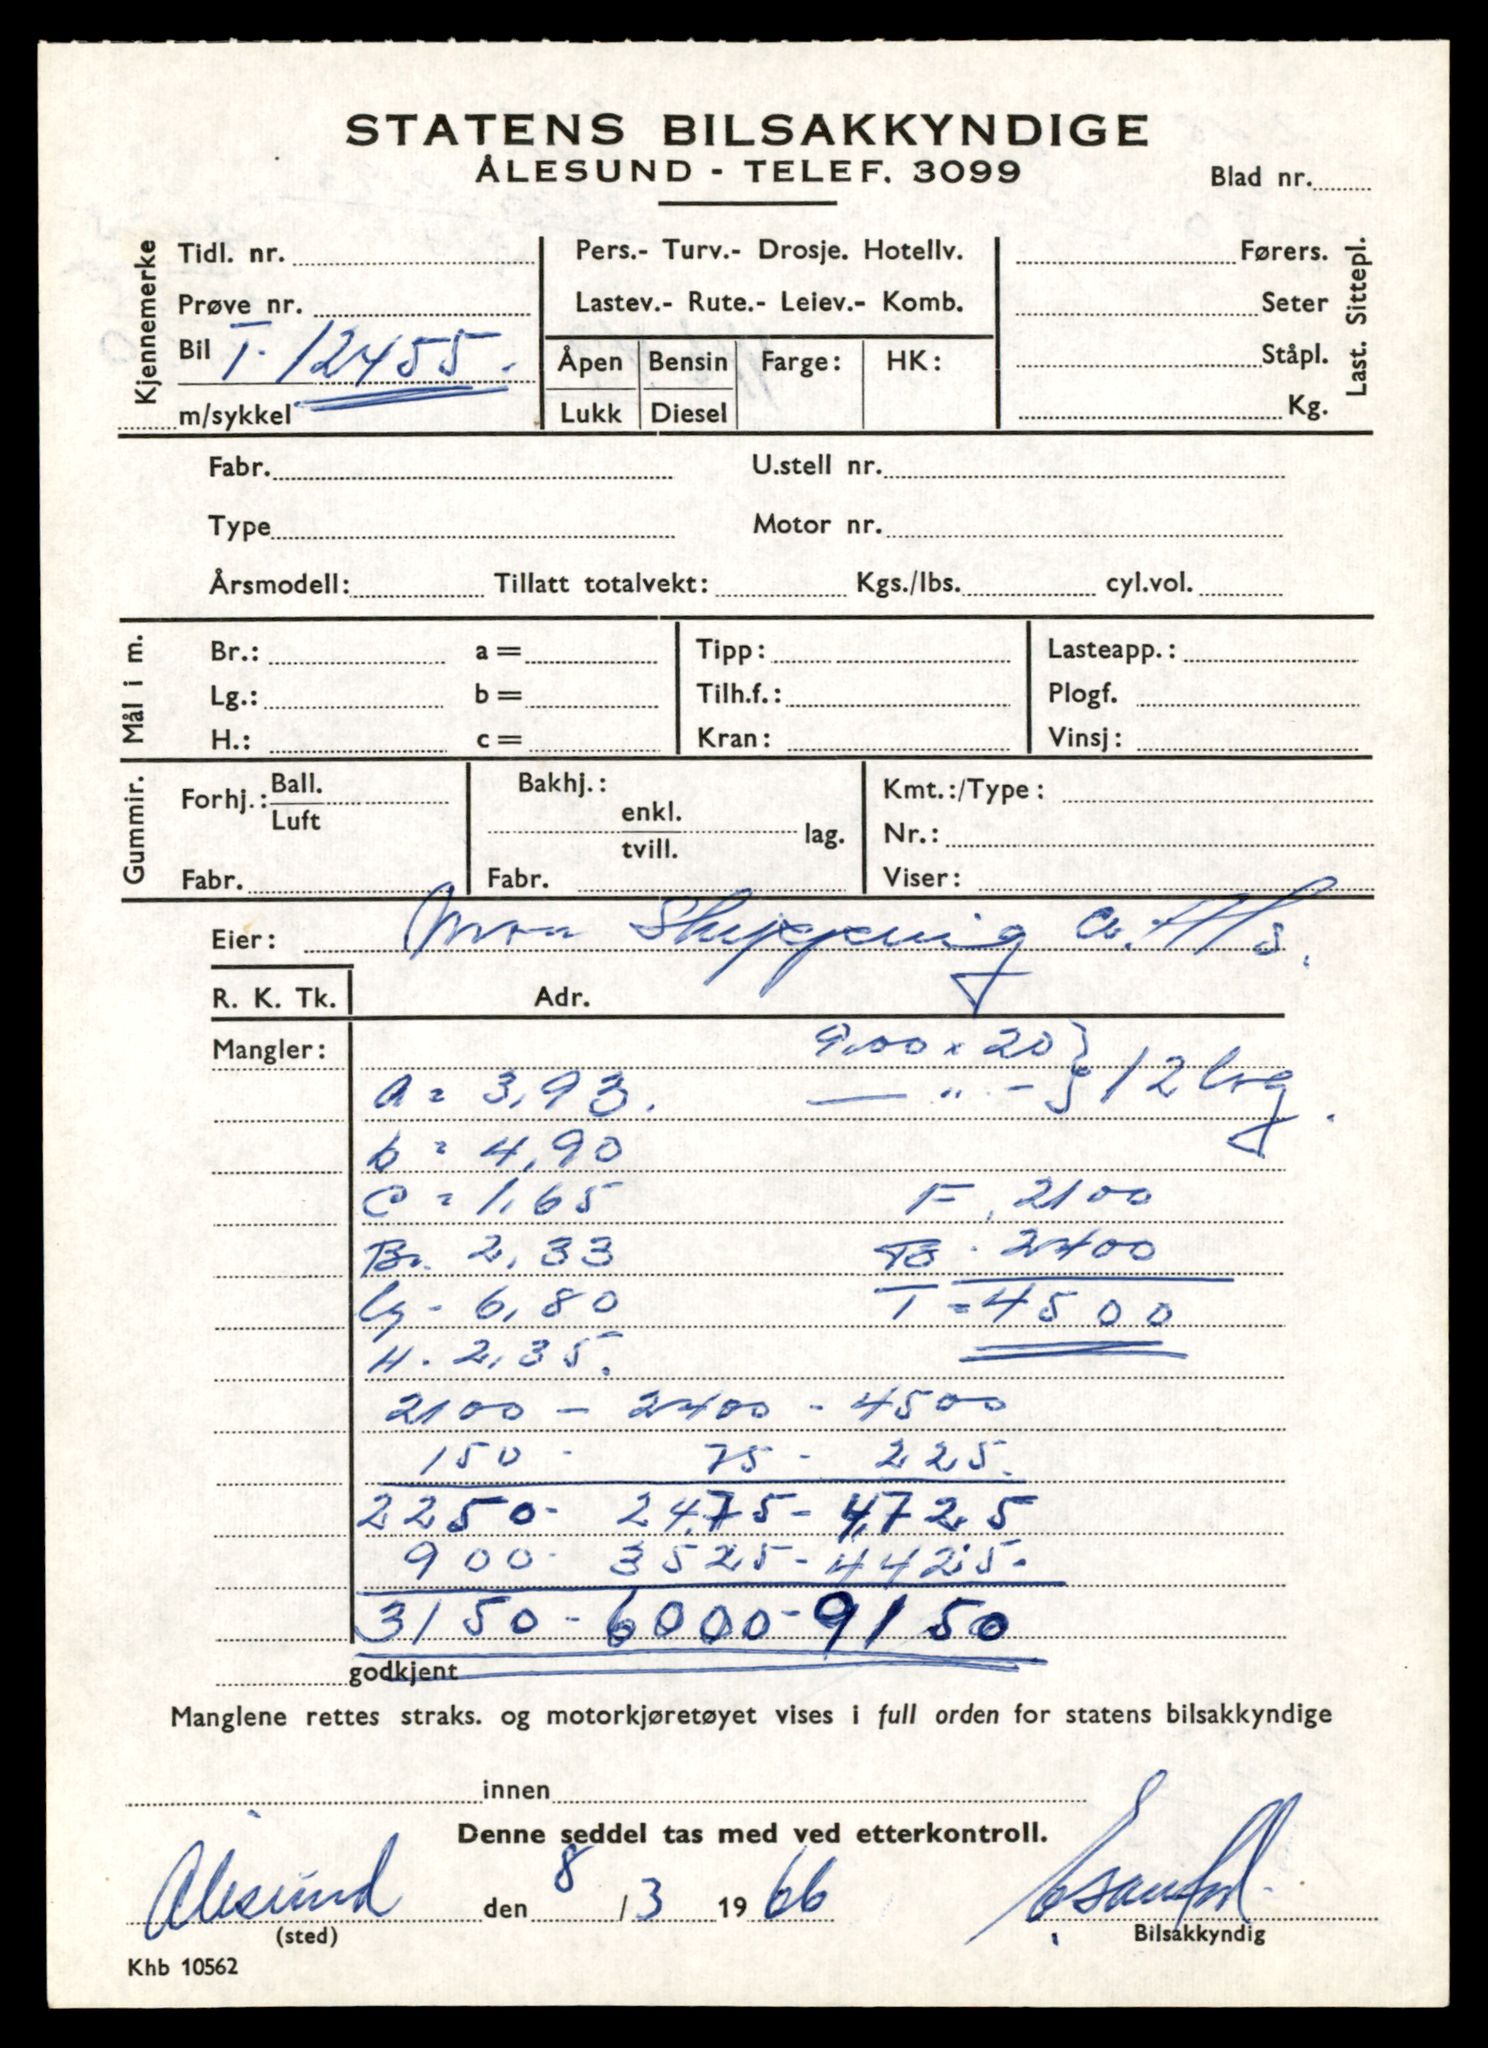 STATENS BILSAKKYNDIGE
ÅLESUND - TELEF. 3099
Blad nr.
Kjennemerke
Tidl. nr.
Prøve nr.
Bil T-12455.
m/sykkel
Pers.- Turv.- Drosje. Hotellv.
Lastev.- Rute.- Leiev.- Komb.
Åpen Bensin Farge: HK:
Lukk Diesel
Førers.
Seter
Ståpl.
Kg.
Last. Sittepl.
Fabr. U.stell nr.
Type Motor nr.
Årsmodell: Tillatt totalvekt: Kgs./lbs. cyl.vol.
Mål i m.
Br.: a = Tipp: Lasteapp.:
Lg.: b = Tilh.f.: Plogf.
H.: c = Kran: Vinsj:
Gummir.
Forhj.: Ball. Luft
Fabr.
Bakhj.:
enkl.
tvill. lag.
Fabr.
Kmt.:/Type:
Nr.:
Viser:
Eier: Shipping Co. A/s.
R. K. Tk. Adr.
Mangler: 9.00 x 20 }
a = 3,93. — " - } 12 lag.
b = 4,90
c = 1,65 F. 2100
Br. 2,33 B. 2400
lg - 6,80 T = 4500
H. 2,35.
2100 - 2400 - 4500
150 - 75 - 225.
2250 - 2475 - 4725
900 - 3525 - 4425.
3150 - 6000 - 9150
godkjent
Manglene rettes straks. og motorkjøretøyet vises i full orden for statens bilsakkyndige
innen
Denne seddel tas med ved etterkontroll.
Ålesund den 8/3 1966
(sted) Bilsakkyndig
Khb 10562